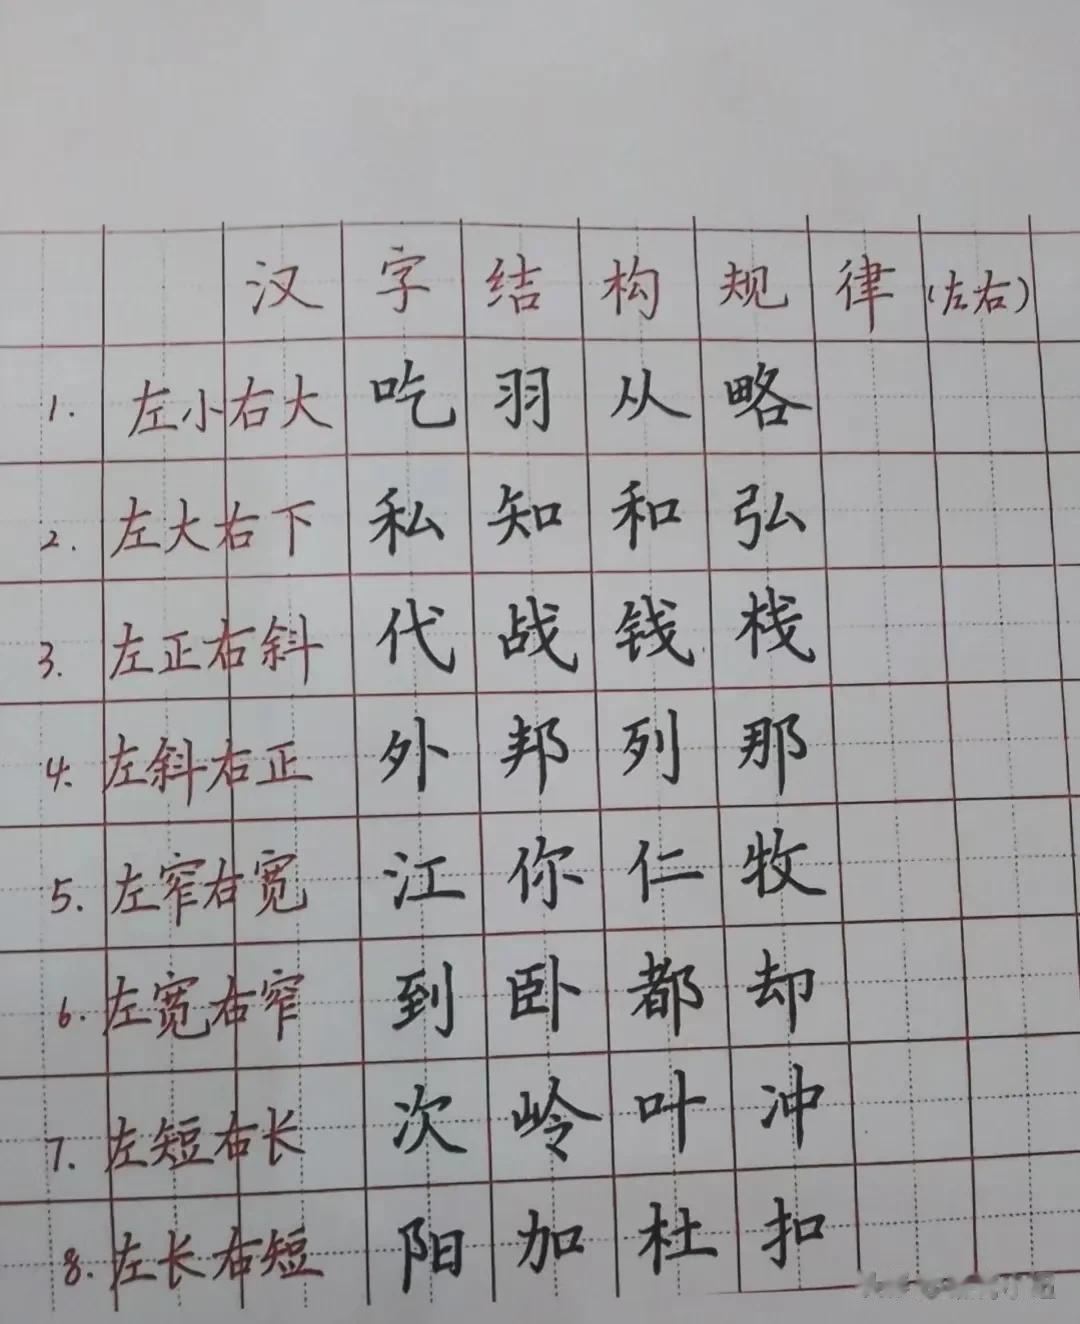 汉字结构规律(左右)
1. 左小右大 吃羽从略
2. 左大右下 私知和弘
3. 左正右斜 代战钱栈
4. 左斜右正 外邦列那
5. 左窄右宽 江你仁牧
6. 左宽右窄 到卧都却
7. 左短右长 次岭叶冲
8. 左长右短 阳加杜扣